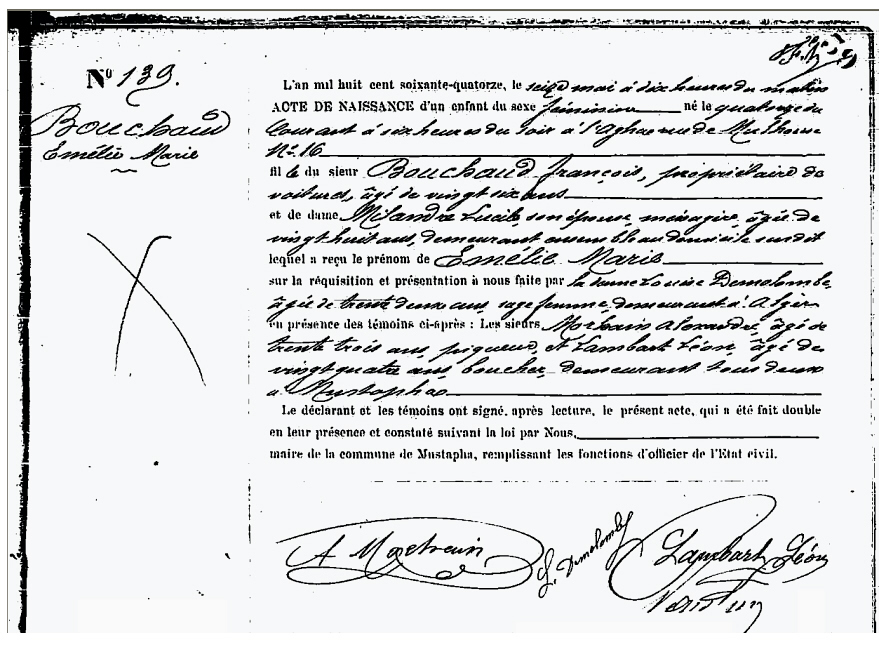 Nº 139.
Bouchaud
Emélie Marie
L'an mil huit cent soixante-quatorze, le seize mai à dix heures du matin
ACTE DE NAISSANCE d'un enfant du sexe féminin né le quatorze du
Courant à six heures du soir à l'Agha rue de Mulhouse
Nº 16
fille du sieur Bouchaud François, propriétaire de
voitures, âgé de vingt six ans
et de dame Milandre Lucile, son épouse, ménagère, âgée de
vingt huit ans, demeurant ensemble au domicile susdit
lequel a reçu le prénom de Emélie Marie
sur la réquisition et présentation à nous faite par la dame Louise Demolombe
âgée de trente deux ans, sage femme, demeurant à Alger
en présence des témoins ci-après : Les sieurs Alexandre, âgé de
trente trois ans, piqueur, et Lambart Léon, âgé de
vingt quatre ans, boucher, demeurant tous deux
à Mustapha
Le déclarant et les témoins ont signé, après lecture, le présent acte, qui a été fait double
en leur présence et constaté suivant la loi par Nous,
maire de la commune de Mustapha, remplissant les fonctions d'officier de l'Etat civil.
A
L. Demolombe
Lambart Léon